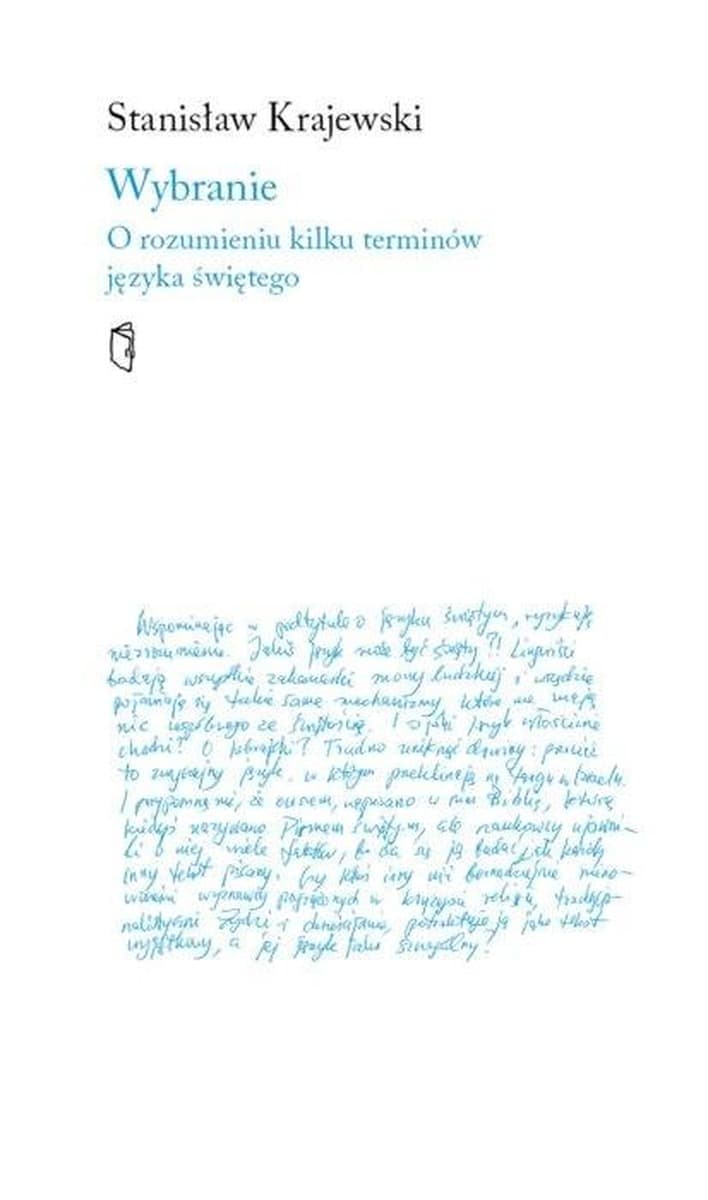 Stanisław Krajewski
Wybranie
O rozumieniu kilku terminów
języka świętego
Wspominając w podtytule o języku świętym, ryzykuję
niezrozumienie. Jakiś język może być święty?! Lingwiści
badają wszystkie zakamarki mowy ludzkiej i wszędzie
pojawiają się takie same mechanizmy, które nie mają
nic wspólnego ze świętością. I o jaki język właściwie
chodzi? O hebrajski? Trudno uniknąć : przecież
to zwyczajny język, w którym przeklinają na targu w Izraelu.
I przypomną mi, że owszem, napisano w nim Biblię, którą
kiedyś nazywano Pismem Świętym, ale naukowcy ujawni-
li o niej wiele faktów, bo da się ją badać jak każdy
inny tekst pisany. Czy ktoś inny niż beznadziejnie nieno-
wocześni wyznawcy pogrążonych w kryzysie religii, tradycjo-
nalistyczni Żydzi i chrześcijanie, potraktuje ją jako tekst
wyjątkowy, a jej język jako szczególny?